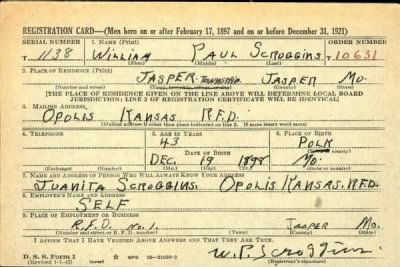 REGISTRATION CARD—(Men born on or after February 17, 1897 and on or before December 31, 1921)
SERIAL NUMBER 1. NAME (Print) ORDER NUMBER
T 1138 WILLIAM PAUL SCROGGINS T 10631
(First) (Middle) (Last)
2. PLACE OF RESIDENCE (Print)
JASPER TOWNSHIP JASPER MO.
(Number and street) (Town, township, village, or city) (County) (State)
[THE PLACE OF RESIDENCE GIVEN ON THE LINE ABOVE WILL DETERMINE LOCAL BOARD
JURISDICTION; LINE 2 OF REGISTRATION CERTIFICATE WILL BE IDENTICAL]
3. MAILING ADDRESS
OPOLIS KANSAS R.F.D.
[Mailing address if other than place indicated on line 2. If same insert word same]
4. TELEPHONE 5. AGE IN YEARS 6. PLACE OF BIRTH
43 POLK
DATE OF BIRTH (Town or county)
DEC. 19 1898 MO.
(Exchange) (Number) (Mo.) (Day) (Yr.) (State or country)
7. NAME AND ADDRESS OF PERSON WHO WILL ALWAYS KNOW YOUR ADDRESS
JUANITA SCROGGINS. OPOLIS KANSAS. RFD.
8. EMPLOYER'S NAME AND ADDRESS
SELF
9. PLACE OF EMPLOYMENT OR BUSINESS
R.F.D. NO. 1. JASPER MO.
(Number and street or R. F. D. number) (Town) (County) (State)
I AFFIRM THAT I HAVE VERIFIED ABOVE ANSWERS AND THAT THEY ARE TRUE.
D. S. S. Form 1 GPO W.P. Scroggins
(Registrant's signature)